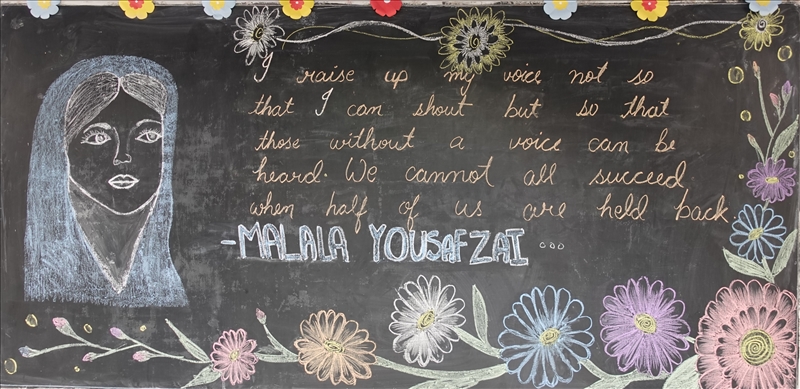 I raise up my voice not so
that I can shout but so that
those without a voice can be
heard. We cannot all succeed
when half of us are held back
-MALALA YOUSAFZAI ...